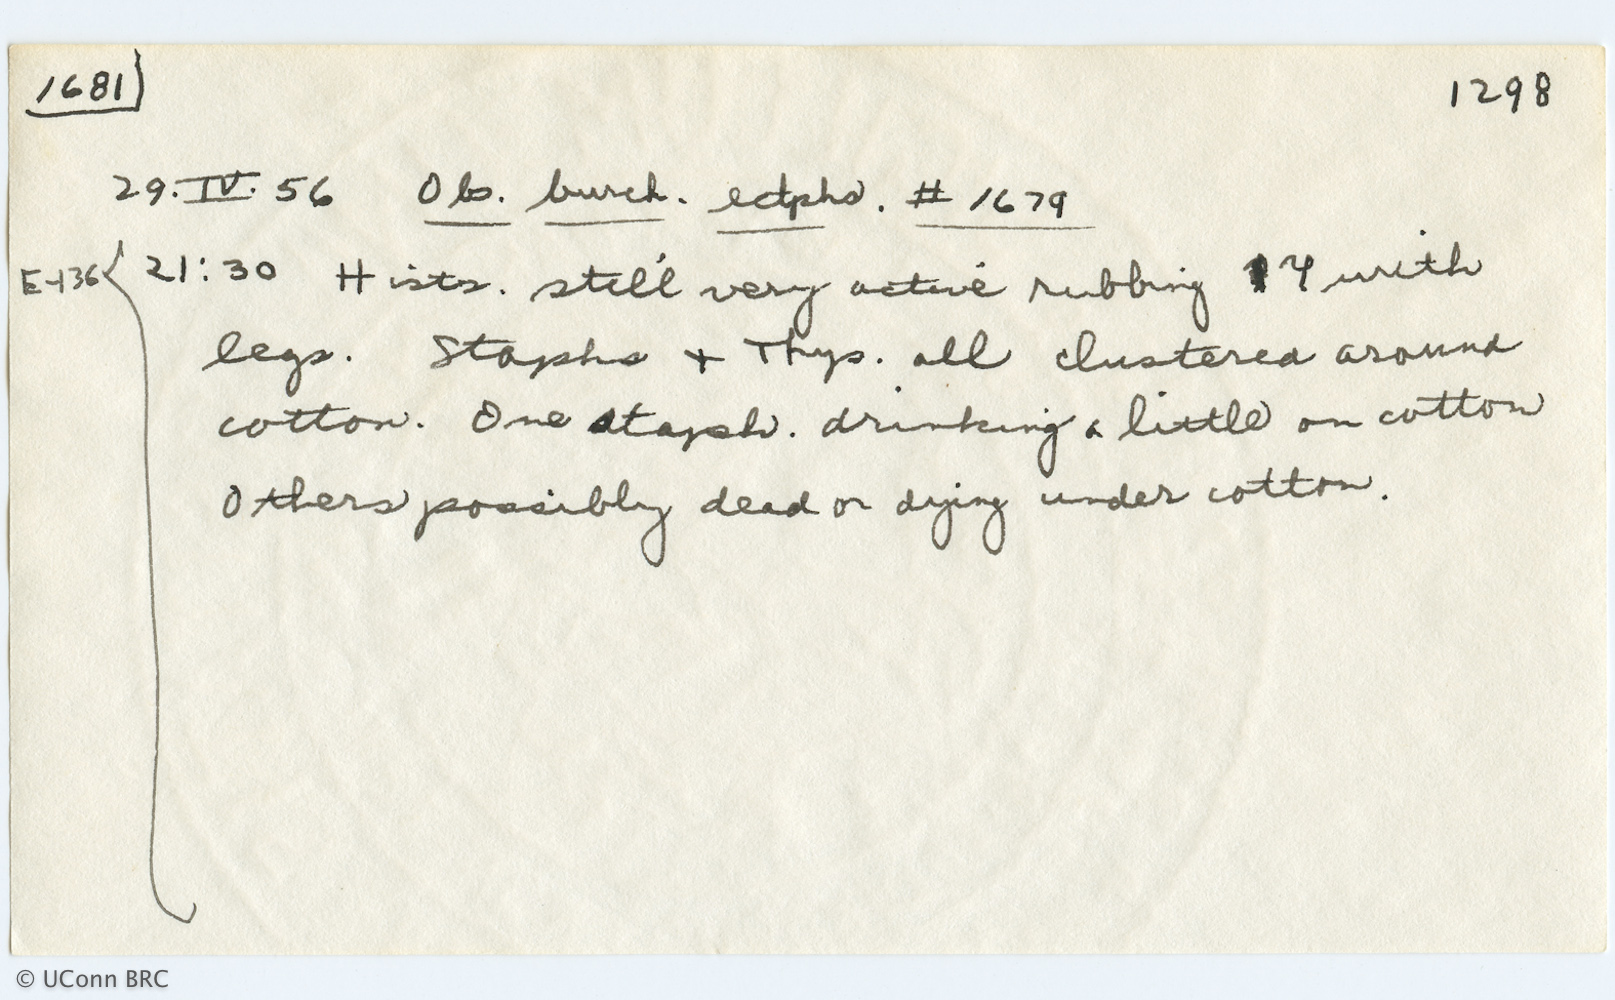 1681 1298
29.IV.56 Obs. burch. ectphs. # 1679
E-136 21:30 Hists. still very active rubbing with
legs. Staphs + Thys. all clustered around
cotton. One staph. drinking a little on cotton
Others possibly dead or dying under cotton.
© UConn BRC